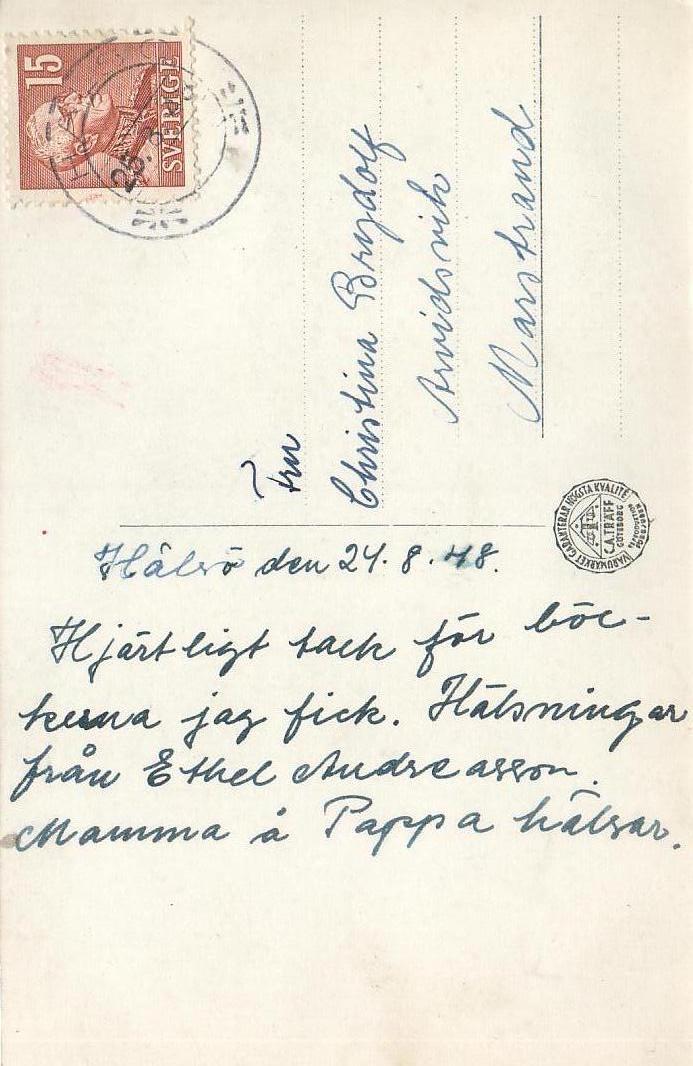 15
SVERIGE
Fru
Christina Brydolf
Arvidsvik
Marstrand
VARUMÄRKET GARANTERAR HÖGSTA KVALITÉ
C.A.TRÄFF
GÖTEBORG
Hälsö den 24.8.48.
Hjärtligt tack för böc-
kerna jag fick. Hälsningar
från Ethel Andreasson.
Mamma å Pappa hälsar.